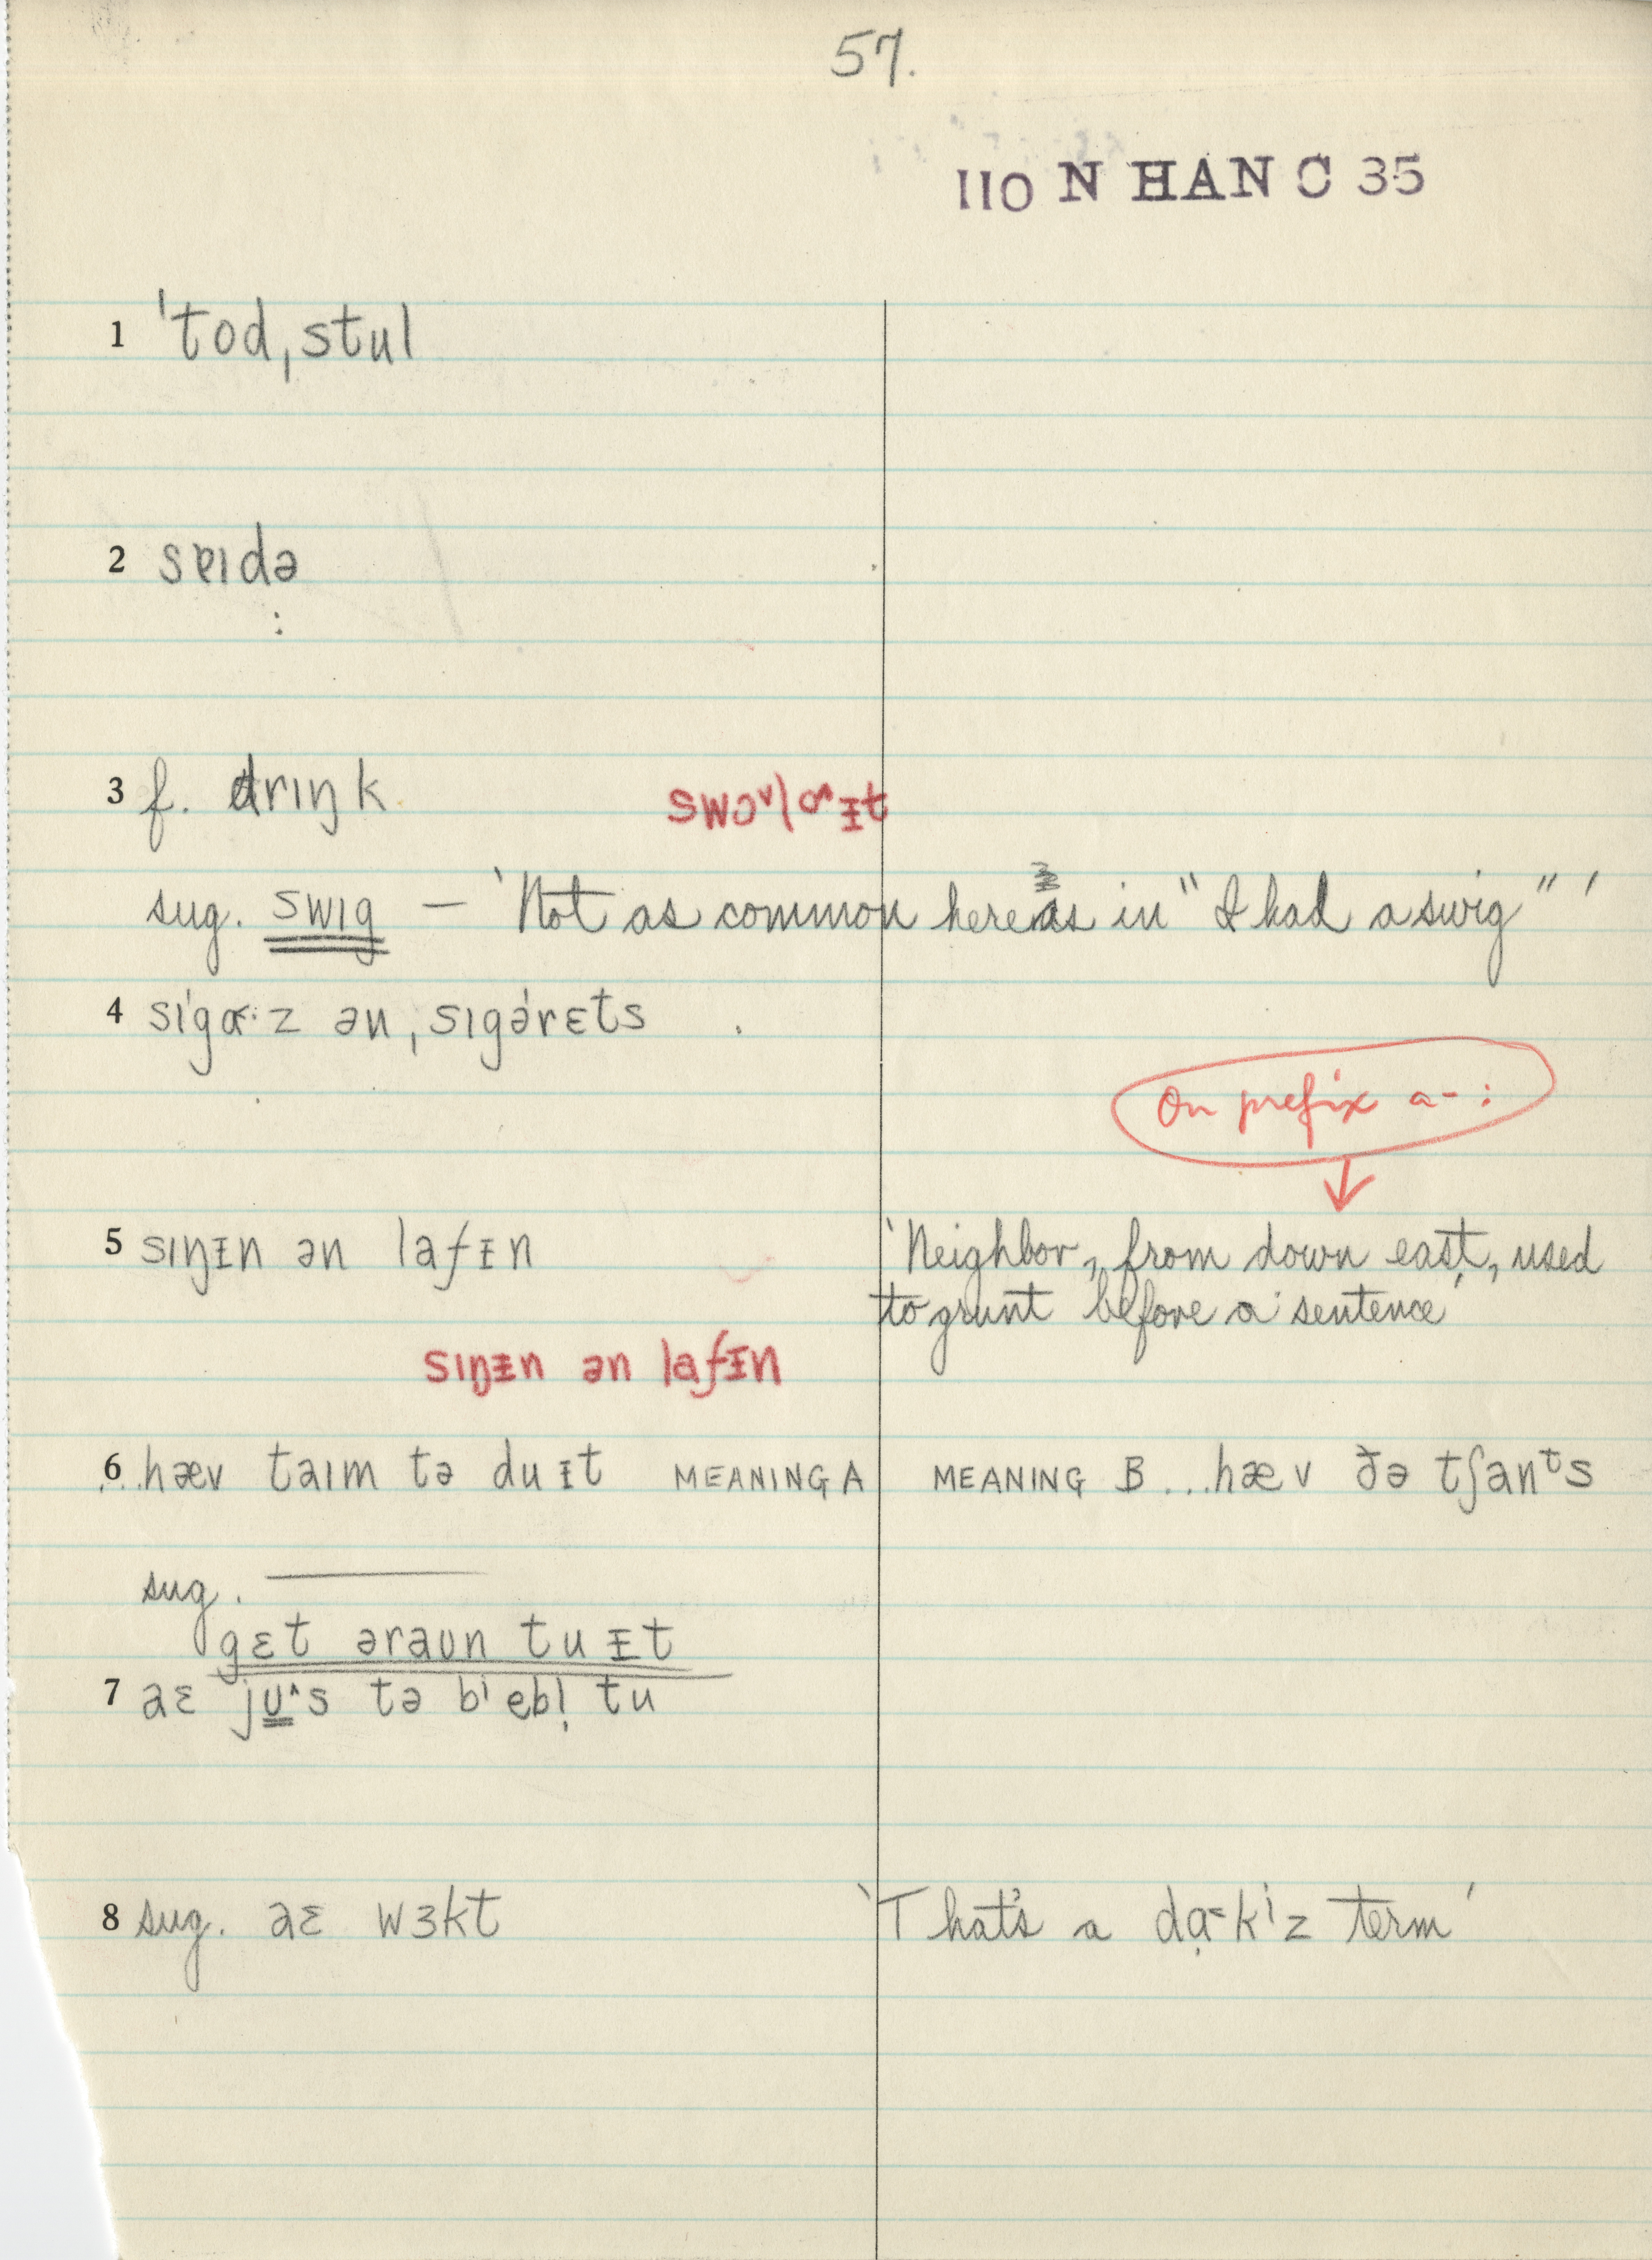 57.
110 N HAN C 35
1 ˈtodˌstul
2 sɐɪdə
3 f. drɪŋk
sug. swɪg — 'Not as common here as in "I had a swig"'
5 sɪŋɪn ən lafɪn
On prefix a- :
'Neighbor, from down east, used
to grunt before a sentence'
sɪŋɪn ən lafɪn
6 ...hæv taɪm tə du ɪt MEANING A MEANING B ...hæv ðə tʃanᵗs
sug.
gɛt əraʊn tu ɪt
7 aɛ ju^s tə bⁱ ebl̩ tu
8 sug. aɛ wɜkt 'That's a da̤kⁱz term'